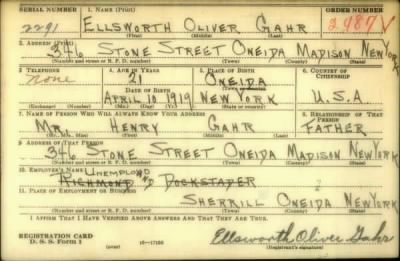 SERIAL NUMBER 1. NAME (Print) ORDER NUMBER
2291 ELLSWORTH OLIVER GAHR 2987V
(First) (Middle) (Last)
2. ADDRESS (Print)
346 STONE STREET ONEIDA MADISON NEW YORK
(Number and street or R. F. D. number) (Town) (County) (State)
3. TELEPHONE 4. AGE IN YEARS 5. PLACE OF BIRTH 6. COUNTRY OF CITIZENSHIP
none 21 ONEIDA
DATE OF BIRTH (Town or county)
APRIL 1 1919 NEW YORK U.S.A
(Exchange) (Number) (Mo.) (Day) (Yr.) (State or country)
7. NAME OF PERSON WHO WILL ALWAYS KNOW YOUR ADDRESS 8. RELATIONSHIP OF THAT PERSON
MR. HENRY GAHR FATHER
(Mr., Mrs., Miss) (First) (Middle) (Last)
9. ADDRESS OF THAT PERSON
346 STONE STREET ONEIDA MADISON NEW YORK
(Number and street or R. F. D. number) (Town) (County) (State)
10. EMPLOYER'S NAME UNEMPLOYED
RICHMOND DOCKSTADER
11. PLACE OF EMPLOYMENT OR BUSINESS
SHERRILL ONEIDA NEW YORK
(Number and street or R. F. D. number) (Town) (County) (State)
I AFFIRM THAT I HAVE VERIFIED ABOVE ANSWERS AND THAT THEY ARE TRUE.
REGISTRATION CARD
D. S. S. Form 1 (over) 16—17105 Ellsworth Oliver Gahr
(Registrant's signature)